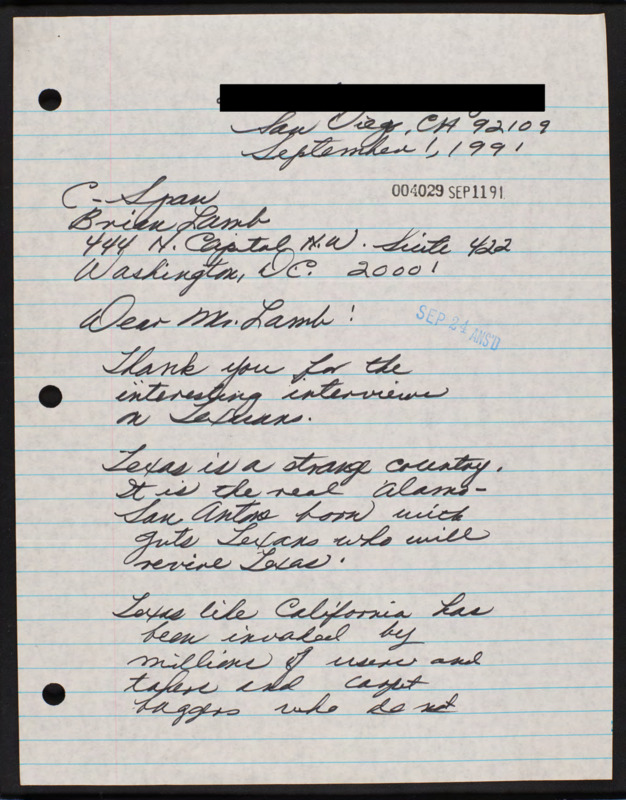 San Diego, CA 92109
September 1, 1991
004029 SEP1191
C-Span
Brian Lamb
444 N. Capital N.W. Suite 422
Washington, D.C. 20001
Dear Mr. Lamb:
SEP 24 ANS'D
Thank you for the
interesting interview
on Texans.
Texas is a strange country.
It is the real Alamo-
San Antone born with
guts Texans who will
revive Texas.
Texas like California has
been invaded by
millions of users and
takers and carpet
baggers who do not